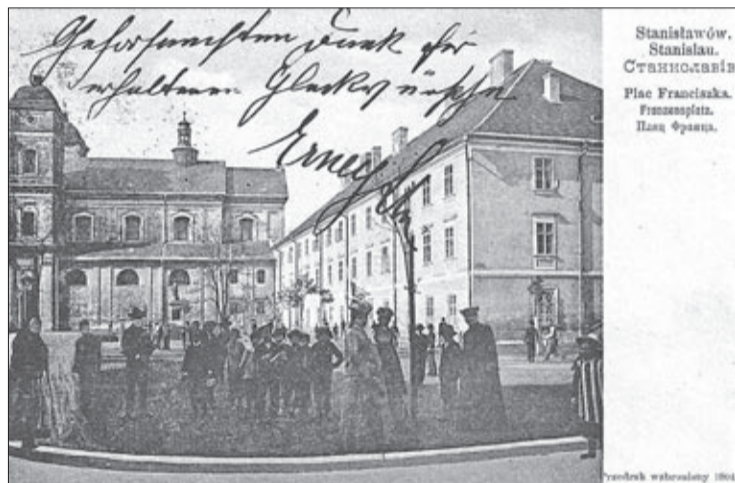 Gehorsamsten Dank für
erhaltenen Glückwünsche
Stanisławów.
Stanislau.
Станиславів
Plac Franciszka.
Franzensplatz.
Плац Франца.
Przedruk wzbroniony 1904